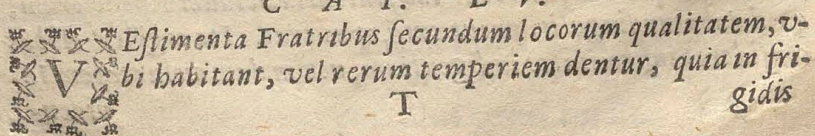 C A P. LV.
VEſtimenta Fratribus ſecundum locorum qualitatem, v-
bi habitant, vel rerum temperiem dentur, quia in fri-
T gidis